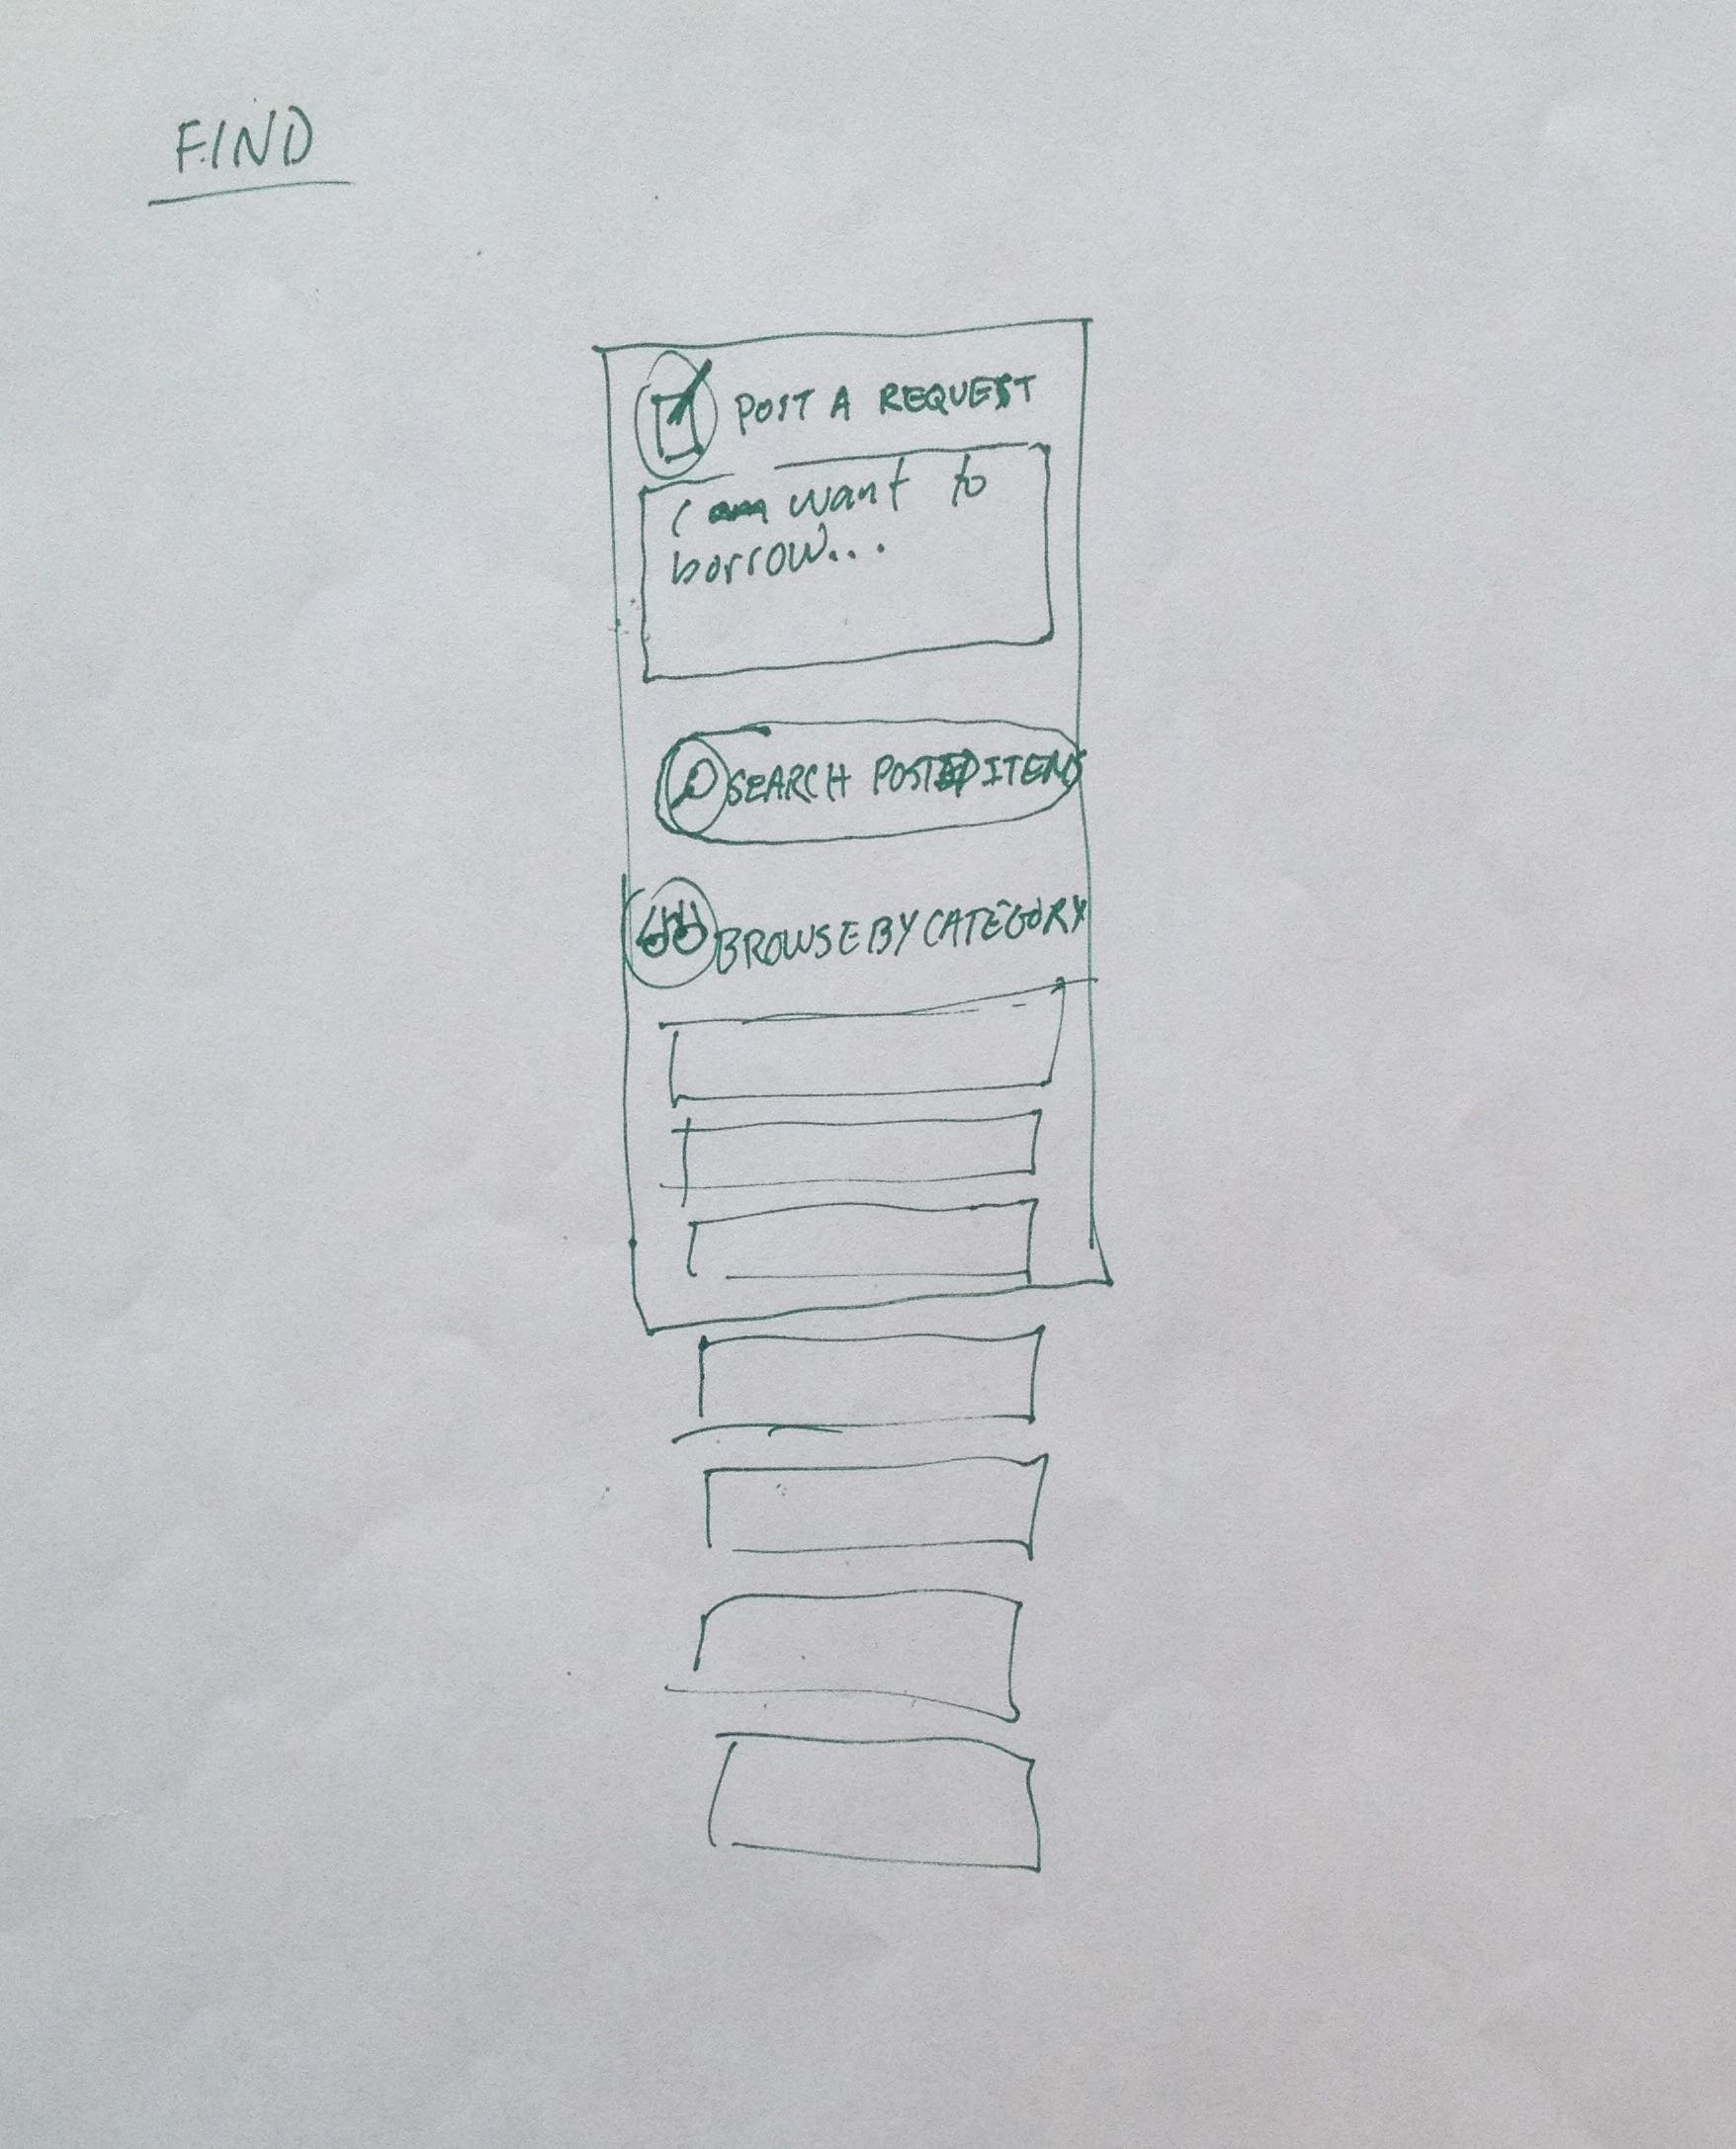 FIND
POST A REQUEST
I am want to
borrow...
SEARCH POSTED ITEMS
BROWSE BY CATEGORY